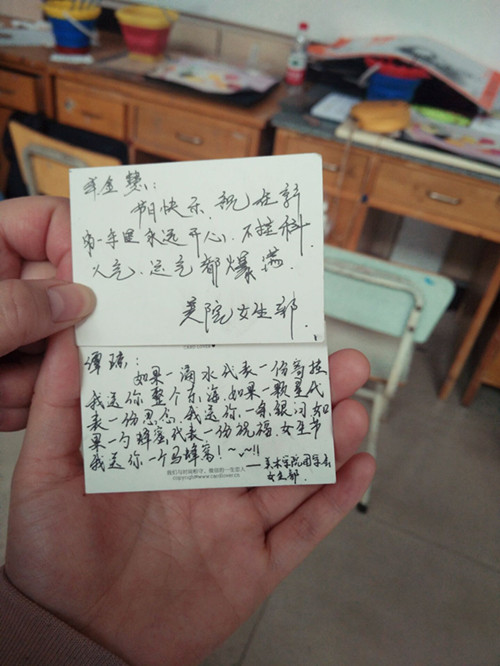 羊金慧:
节日快乐,祝在新
的一年里永远开心,不挂科
人气、运气都爆满.
美院女生部.
谭琦:
如果一滴水代表一份牵挂
我送你整个东海,如果一颗星代
表一份思念,我送你一条银河,如
果一勺蜂蜜代表一份祝福,女生节
我送你一个马蜂窝!~v~!!
——美术学院团学会
女生部.